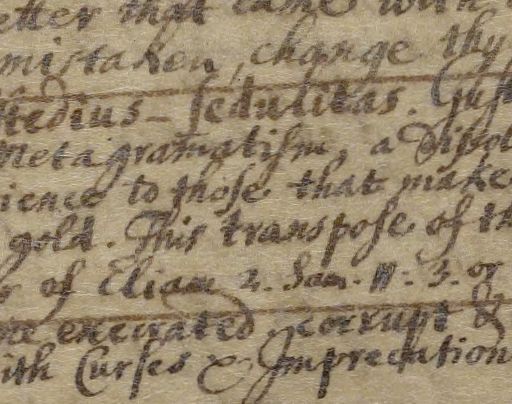 etter that came with
mistaken, change thy
stedius - sedulitas. Just
Metagramatism, a Dissol
ience to those that make
gold. This transpose of th
r of Eliam 2. Sam. 11. 3. or
execrated corrupt &
ith Curses & Imprecation